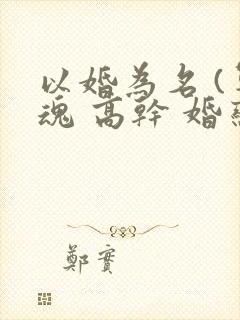 以婚為名(
魂 高幹 婚
鄭實